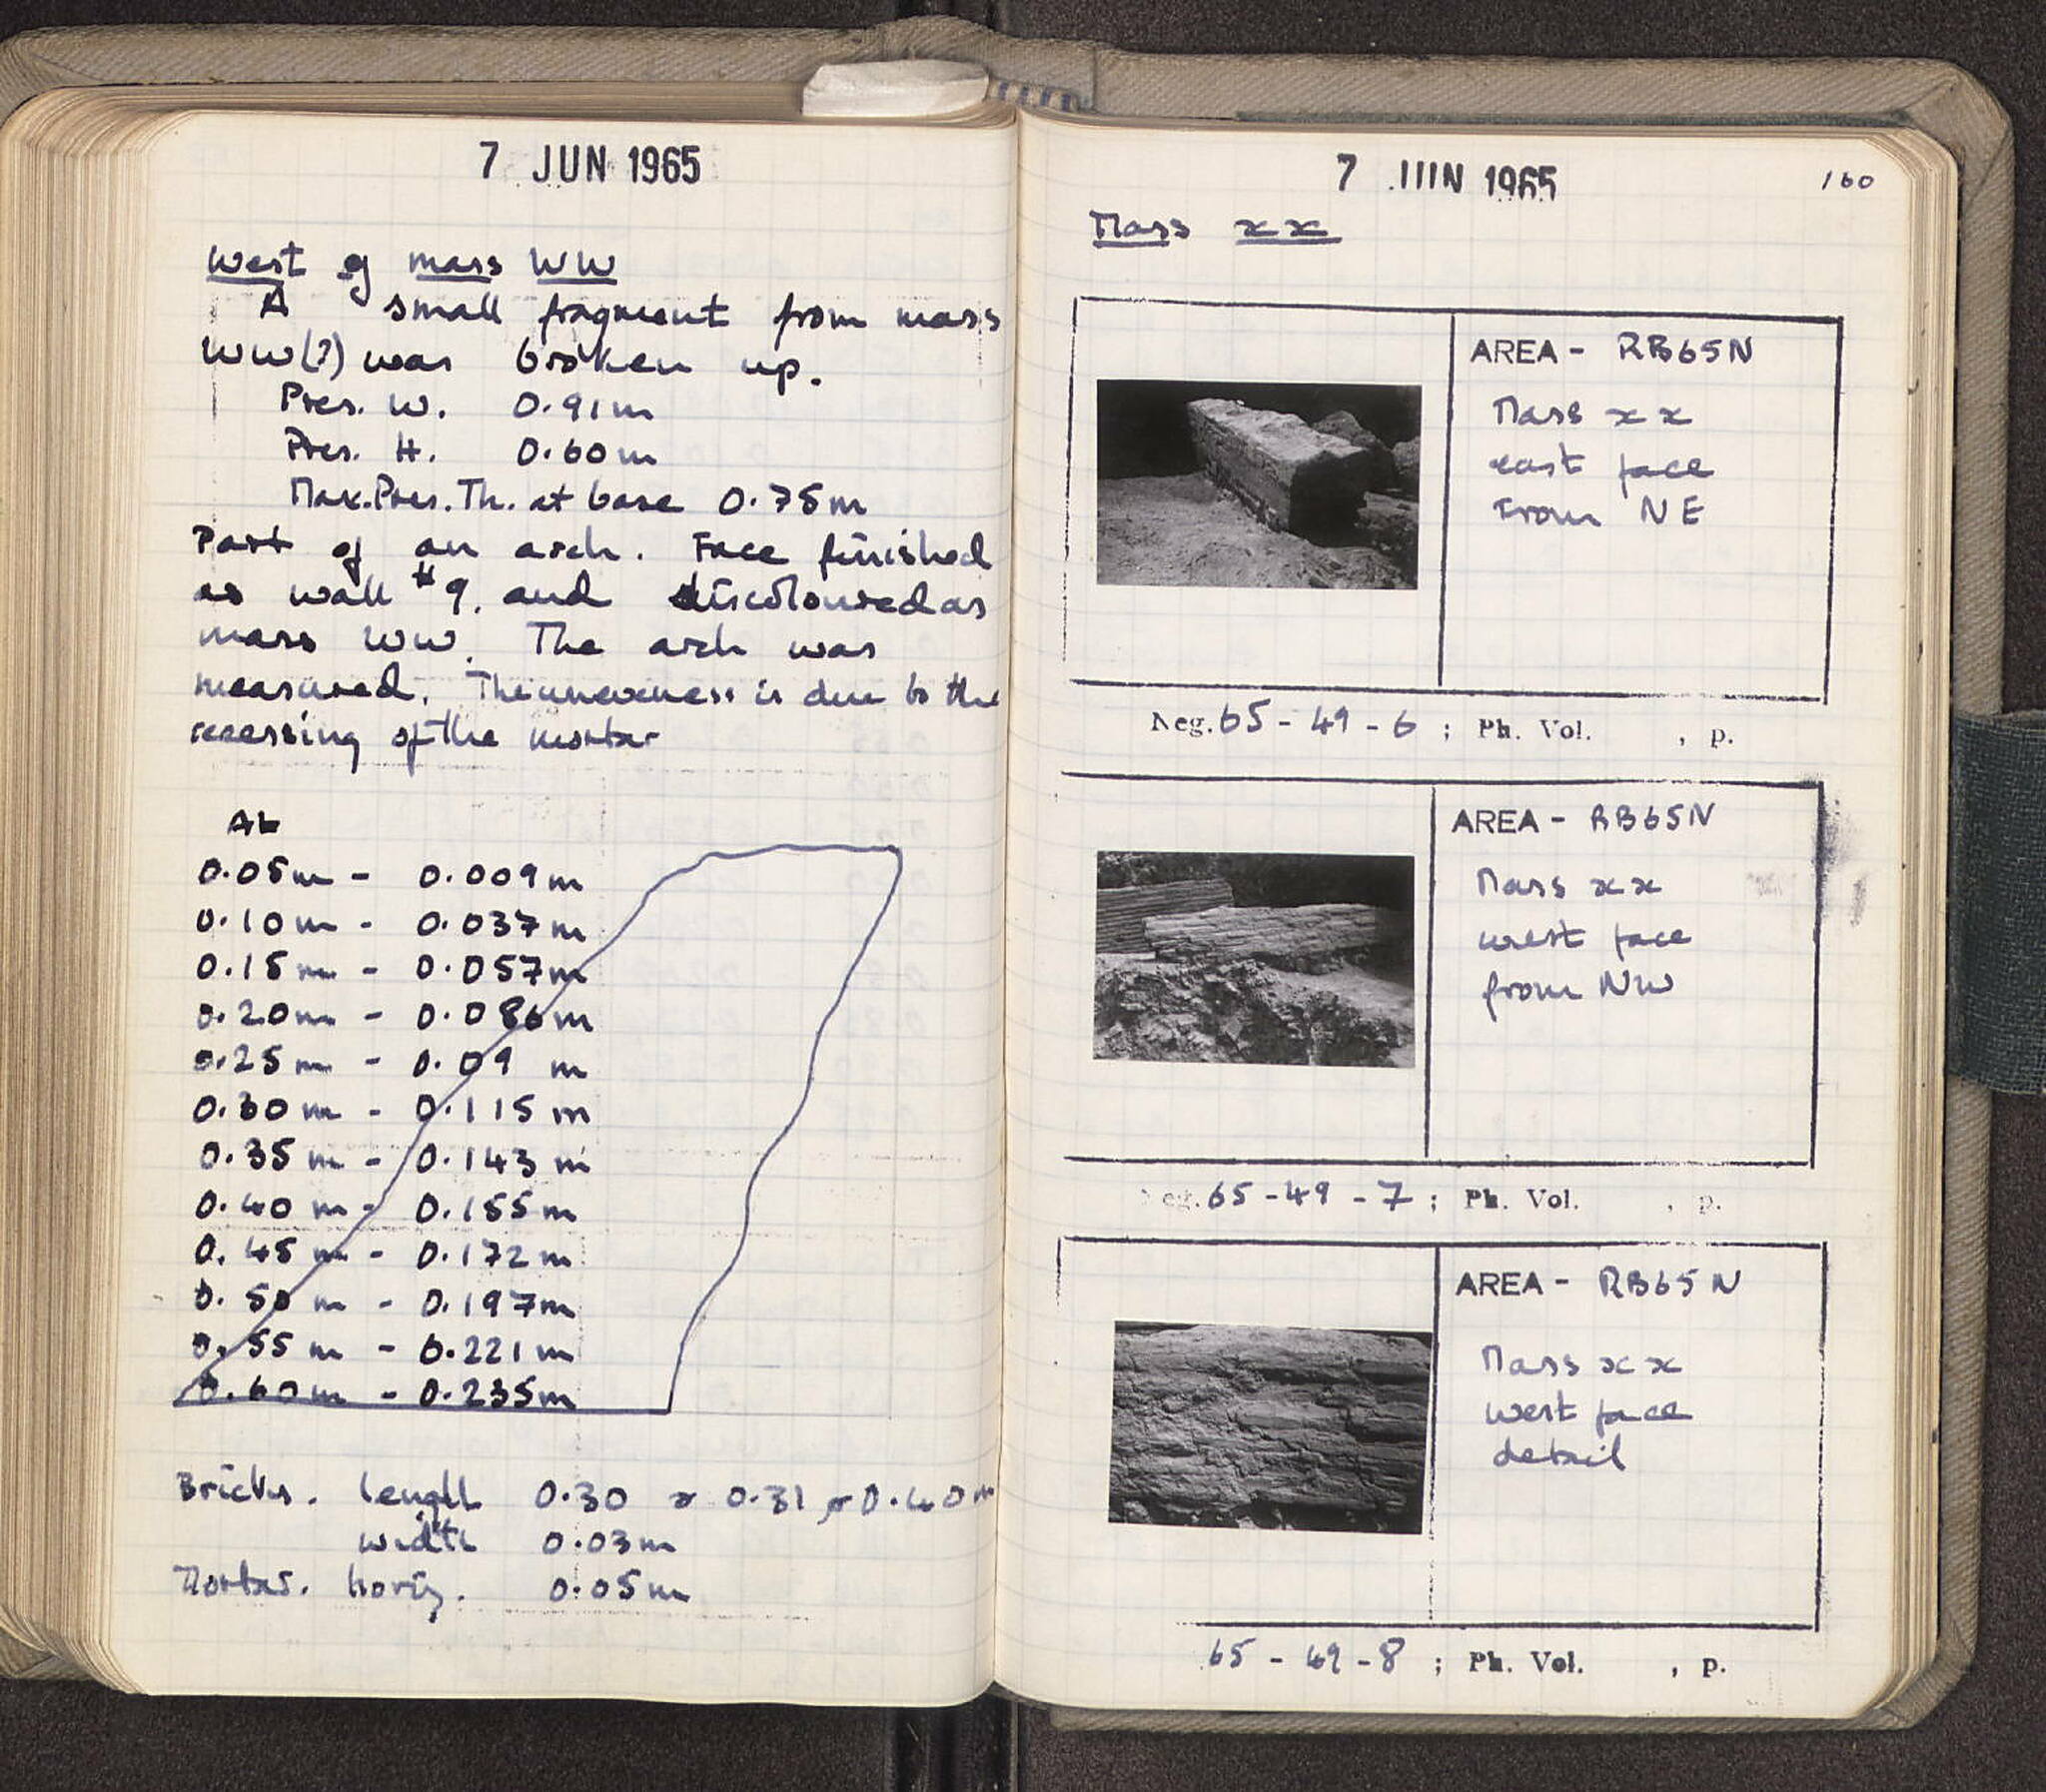 7 JUN 1965
West of mass WW
A small fragment from mass
WW(?) was broken up.
Pres. W. 0.91m
Pres. H. 0.60m
Max.Pres.Th. at base 0.75m
Part of an arch. Face finished
as wall #9, and discoloured as
mass WW. The arch was
measured. The uneveness is due to the
recessing of the mortar
At
0.05m - 0.009m
0.10m - 0.037m
0.15m - 0.057m
0.20m - 0.086m
0.25m - 0.09 m
0.30m - 0.115m
0.35m - 0.143m
0.40m - 0.155m
0.45m - 0.172m
0.50m - 0.197m
0.55m - 0.221m
0.60m - 0.235m
Bricks. length 0.30 x 0.31 0.40m
width 0.03m
Mortar. horiz. 0.05m
7 JUN 1965
160
Mass xx
AREA - RB65N
Mass xx
east face
From NE
Neg. 65-49-6 ; Ph. Vol. , p.
AREA - RB65N
Mass xx
west face
from NW
Neg. 65-49-7 ; Ph. Vol. , p.
AREA - RB65N
Mass xx
west face
detail
65-49-8 ; Ph. Vol. , p.